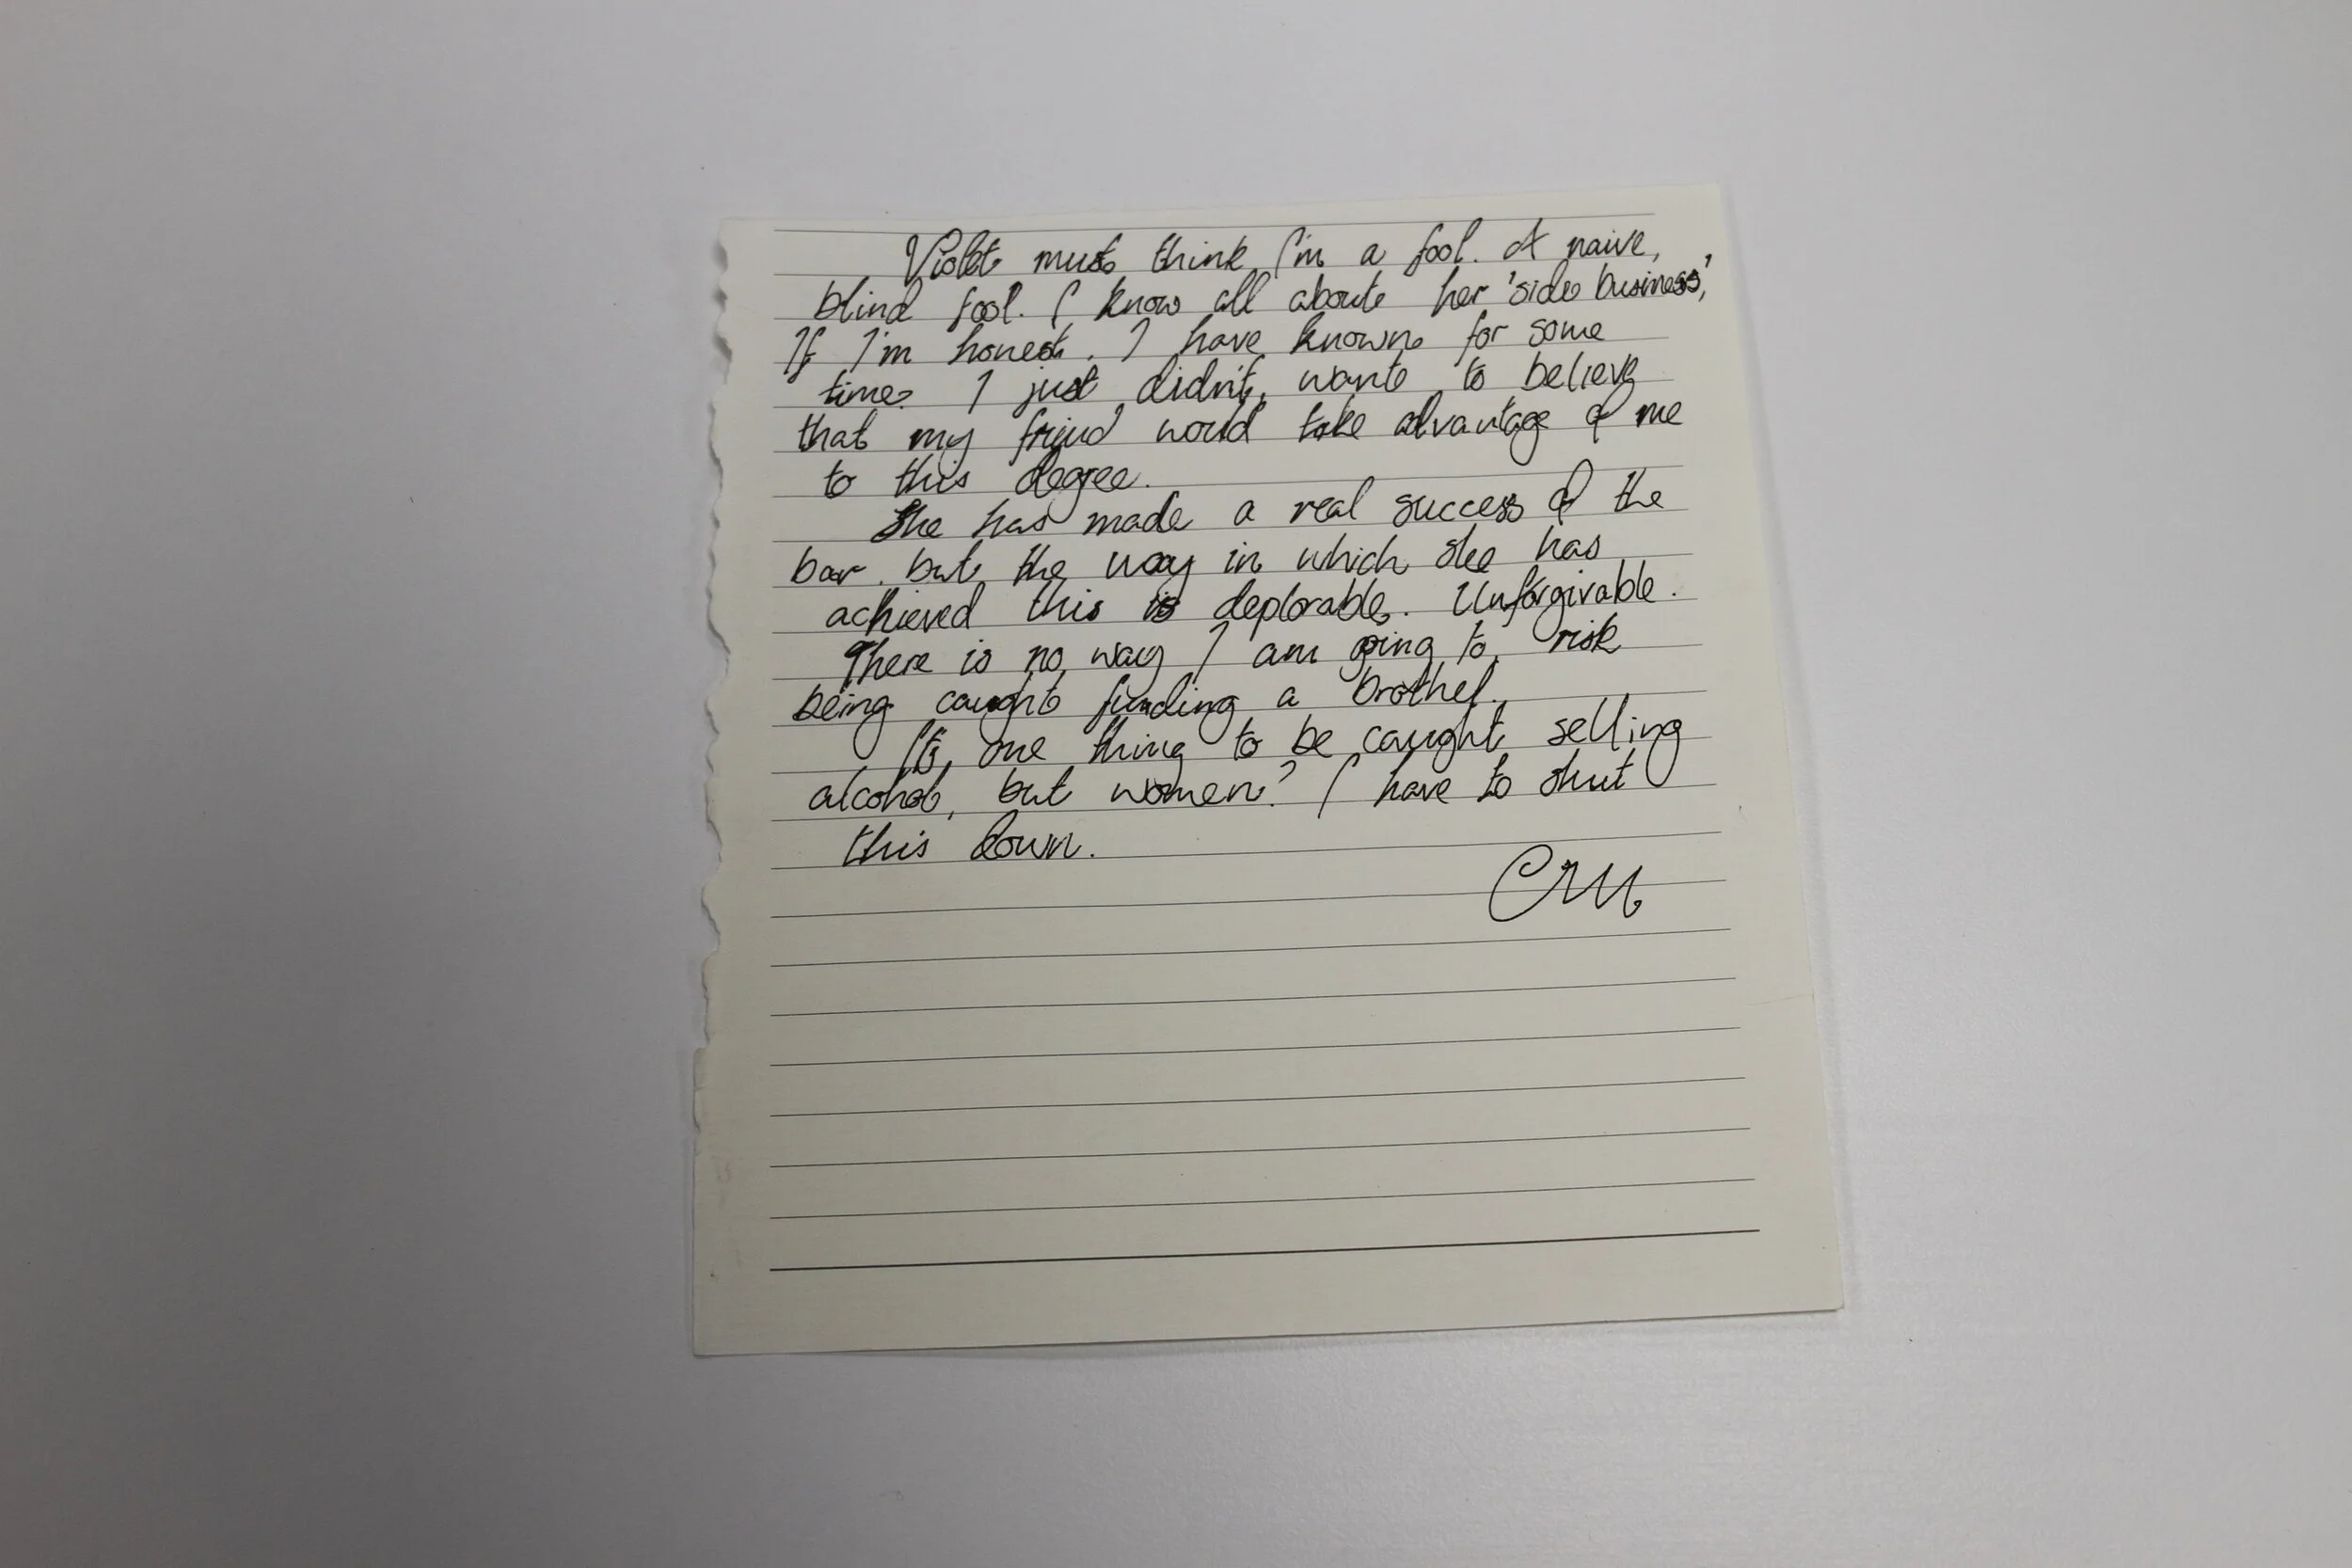 Violet must think I'm a fool. A naive,
blind fool. I know all about her 'side business',
If I'm honest. I have known for some
time. I just didn't want to believe
that my friend would take advantage of me
to this degree.
She has made a real success of the
bar. but the way in which she has
achieved this is deplorable. Unforgivable.
There is no way I am going to risk
being caught funding a brothel.
It's one thing to be caught selling
alcohol, but women? I have to shut
this down.
CM